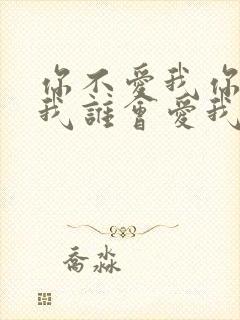 你不愛我你
我誰會愛我
喬淼